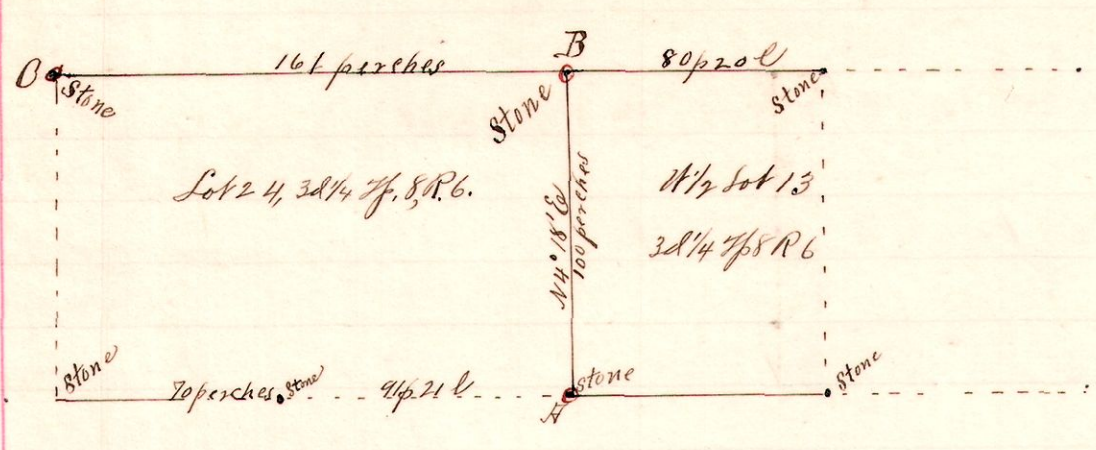 B
161 perches
80p 20 l
C
Stone
Stone
Stone
Lot 24, 3d 1/4 Tp. 8, R. 6.
N 4° 18' E
100 perches
W 1/2 Lot 13
3d 1/4 Tp 8 R 6
Stone
70 perches
Stone
91p. 21 l
A
Stone
Stone